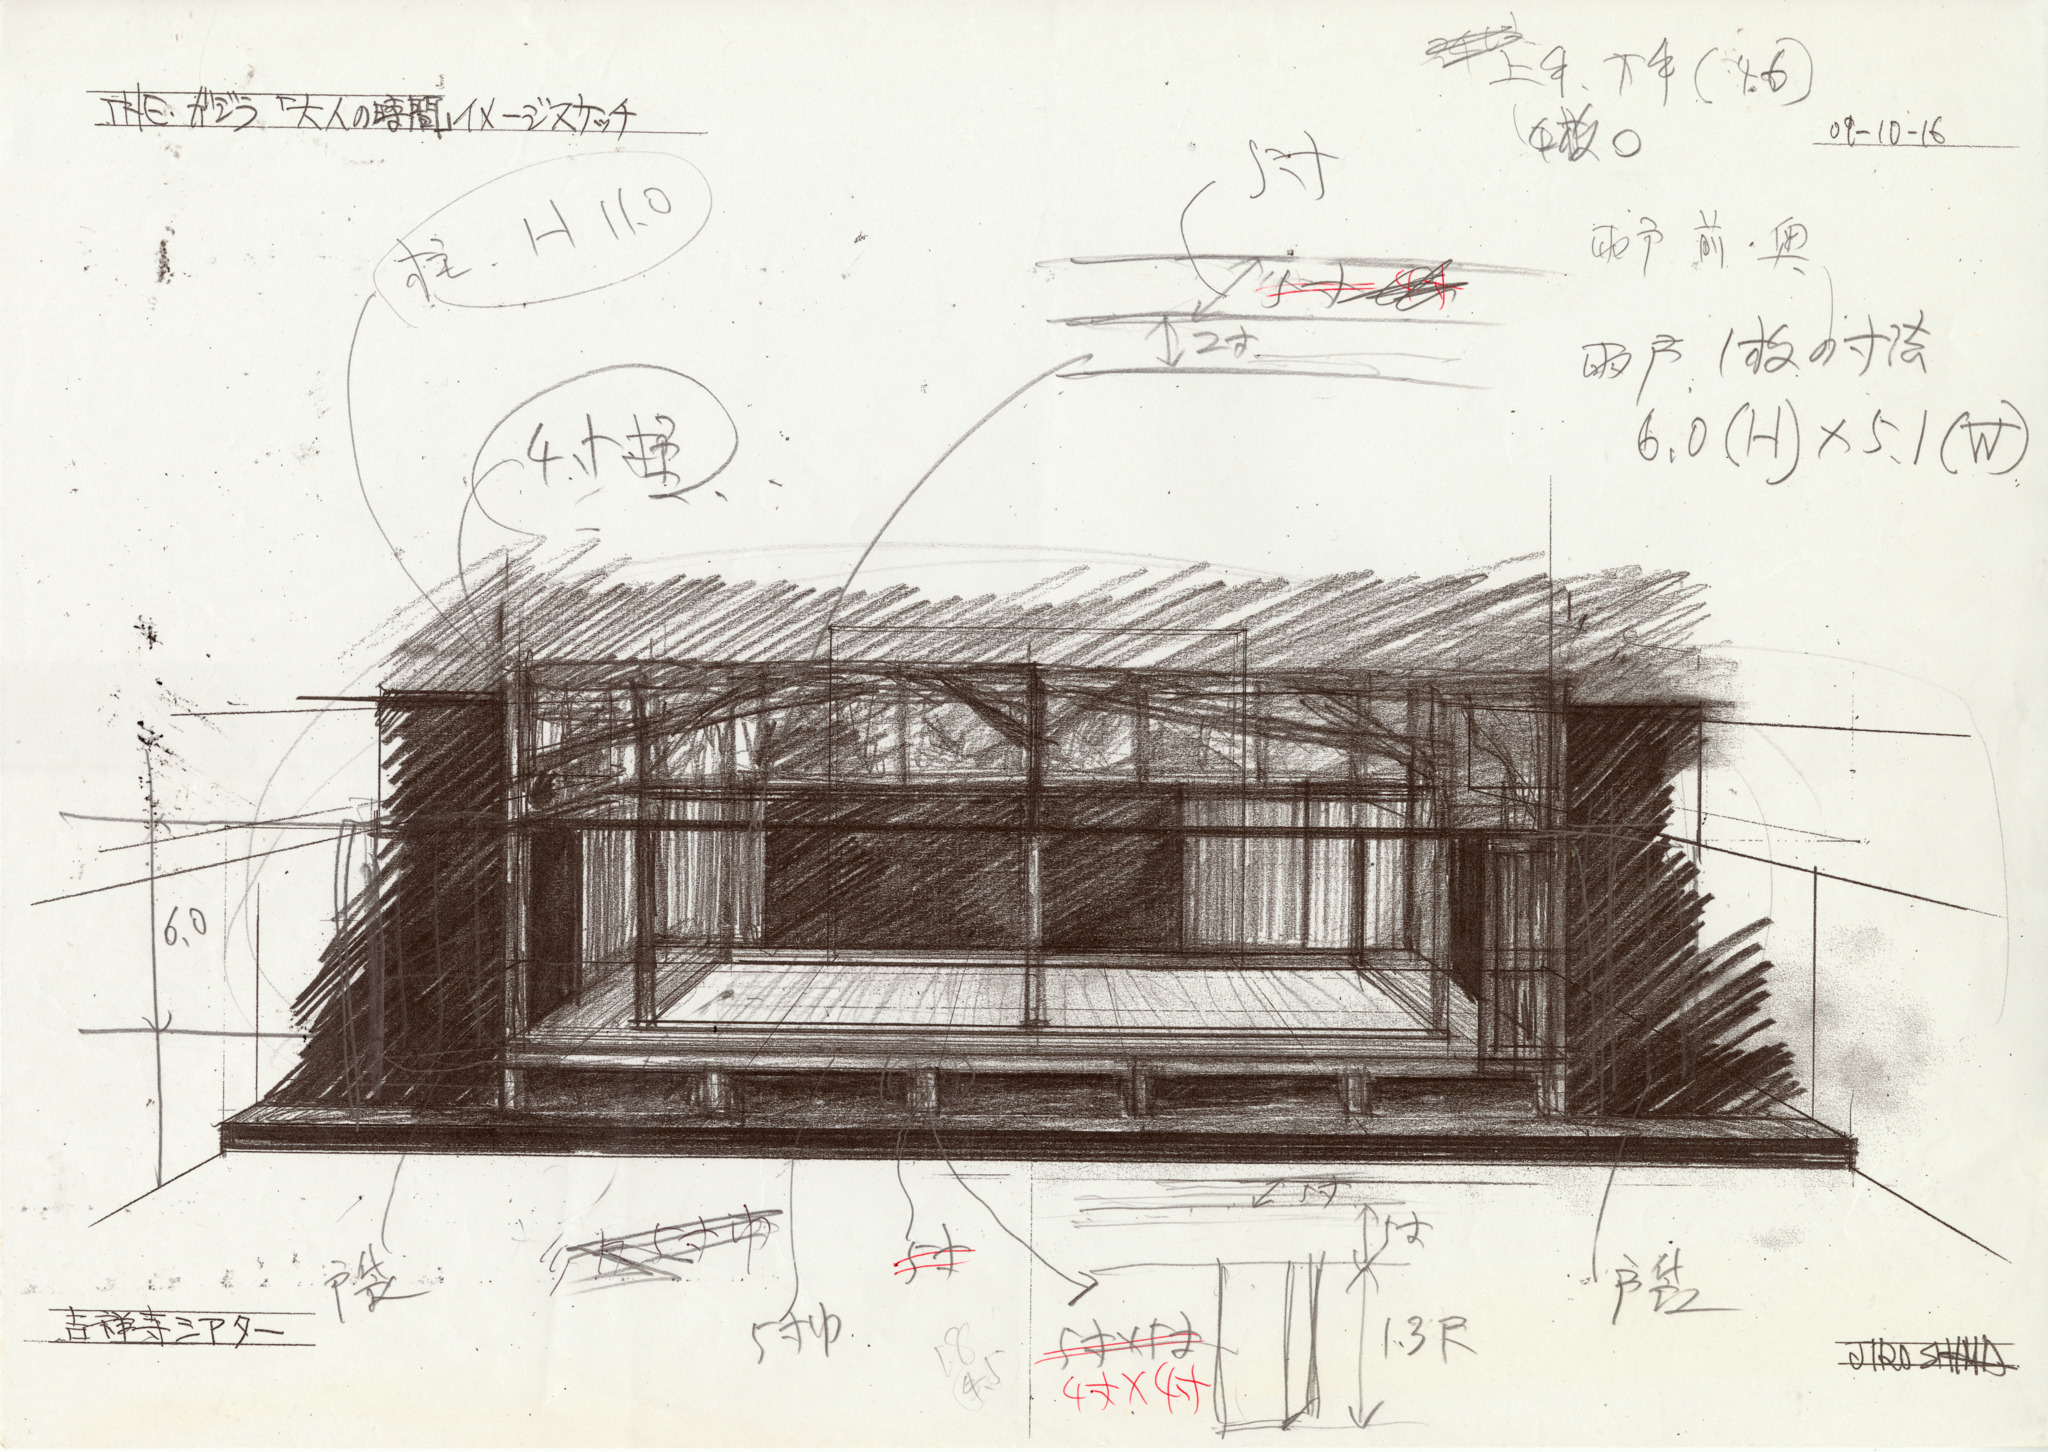 THE・ガジラ「大人の時間」イメージスケッチ
上手、下手 (4.6)
4枚
09-10-16
柱. H 11.0
5寸
雨戸 前・奥
2寸
雨戸 1枚の寸法
6.0 (H) × 5.1 (W)
4寸
6.0
5寸
5寸
戸袋
5寸巾
5寸
戸袋
吉祥寺シアター
5寸巾
1.8
4.5
5寸×5寸
4寸×4寸
1.3R
JIRO SHIMA